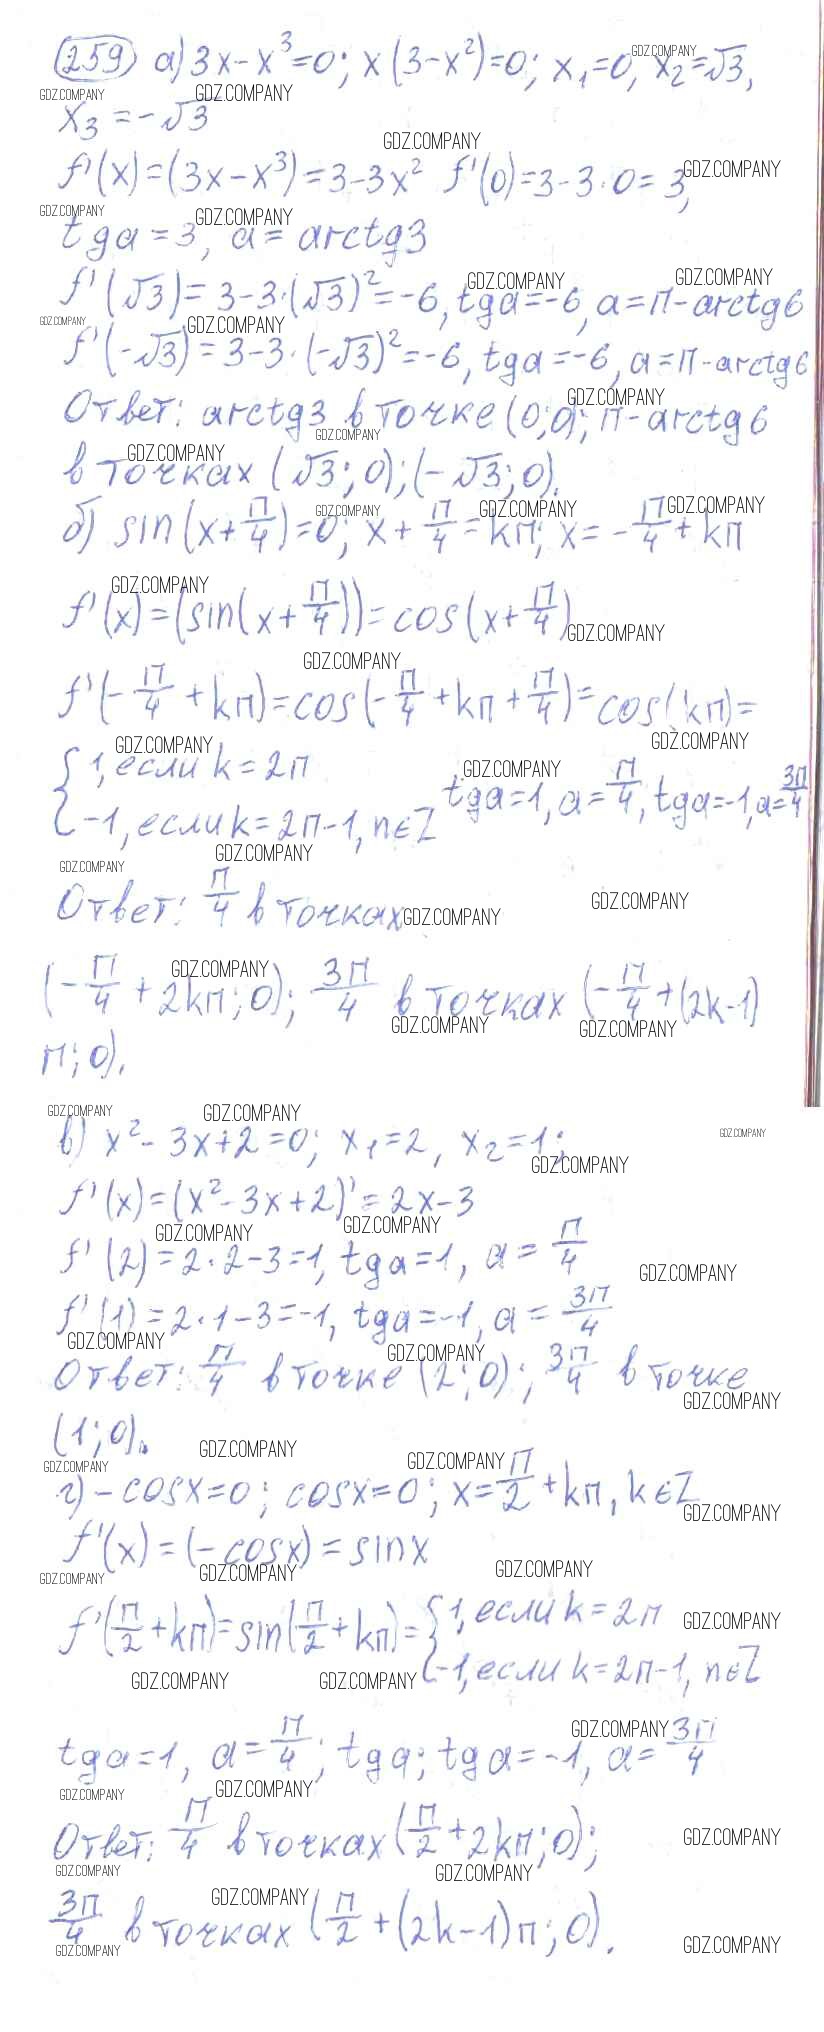 259 а) 3x-x³=0; x(3-x²)=0; x₁=0, x₂=√3,
x₃=-√3
f'(x)=(3x-x³)=3-3x² f'(0)=3-3·0=3,
tga=3, a=arctg3
f'(√3)=3-3·(√3)²=-6, tga=-6, a=π-arctg6
f'(-√3)=3-3·(-√3)²=-6, tga=-6, a=π-arctg6
Ответ: arctg3 в точке (0;0); π-arctg6
в точках (√3;0);(-√3;0).
б) sin(x+π/4)=0; x+π/4=kπ; x=-π/4+kπ
f'(x)=(sin(x+π/4))=cos(x+π/4)
f'(-π/4+kπ)=cos(-π/4+kπ+π/4)=cos(kπ)=
{1, если k=2п
{-1, если k=2п-1, n∈Z tga=1, a=π/4, tga=-1, a=3π/4
Ответ: π/4 в точках
(-π/4+2kπ;0); 3π/4 в точках (-π/4+(2k-1)
π;0).
в) x²-3x+2=0; x₁=2, x₂=1;
f'(x)=(x²-3x+2)'=2x-3
f'(2)=2·2-3=1, tga=1, a=π/4
f'(1)=2·1-3=-1, tga=-1, a=3π/4
Ответ: π/4 в точке (2;0); 3π/4 в точке
(1;0).
г) -cosx=0; cosx=0; x=π/2+kπ, k∈Z
f'(x)=(-cosx)=sinx
f'(π/2+kπ)=sin(π/2+kπ)={1, если k=2п
{-1, если k=2п-1, n∈Z
tga=1, a=π/4; tga; tga=-1, a=3π/4
Ответ: π/4 в точках (π/2+2kπ;0);
3π/4 в точках (π/2+(2k-1)π;0).
GDZ.COMPANY